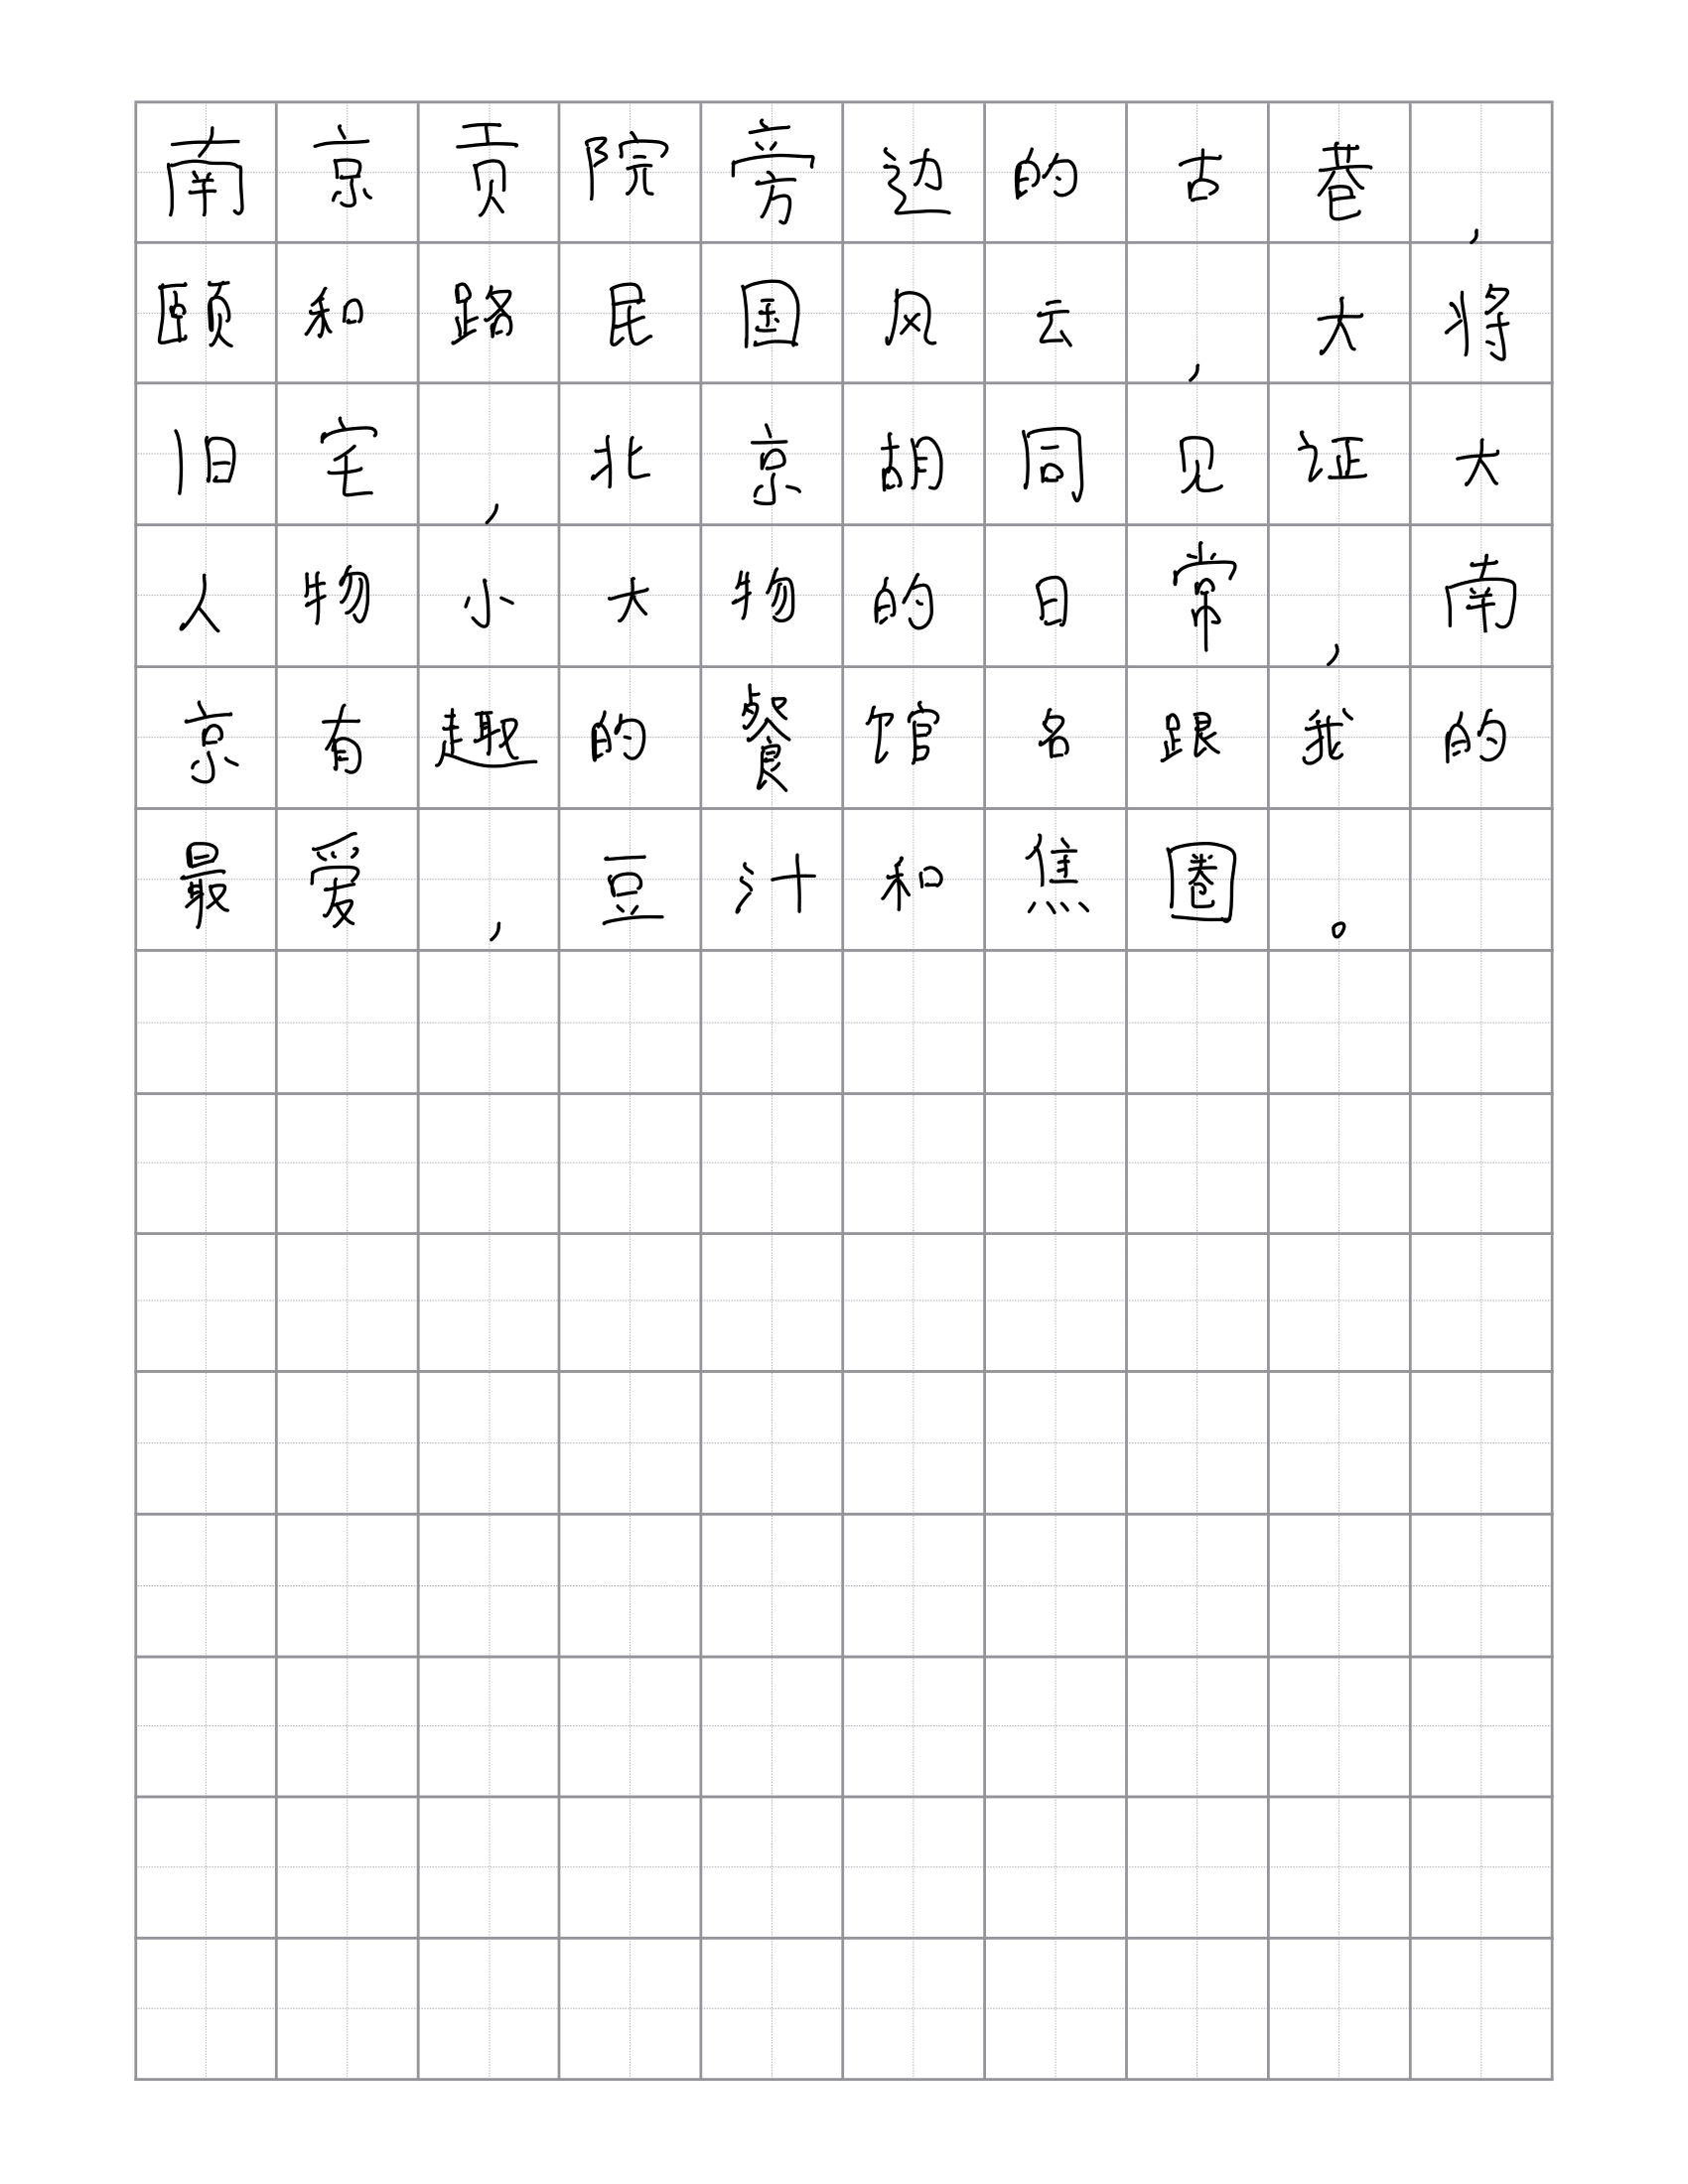 南京贡院旁边的古巷,
颐和路民国风云,大将
旧宅,北京胡同见证大
人物小大物的日常,南
京有趣的餐馆名跟我的
最爱,豆汁和焦圈。